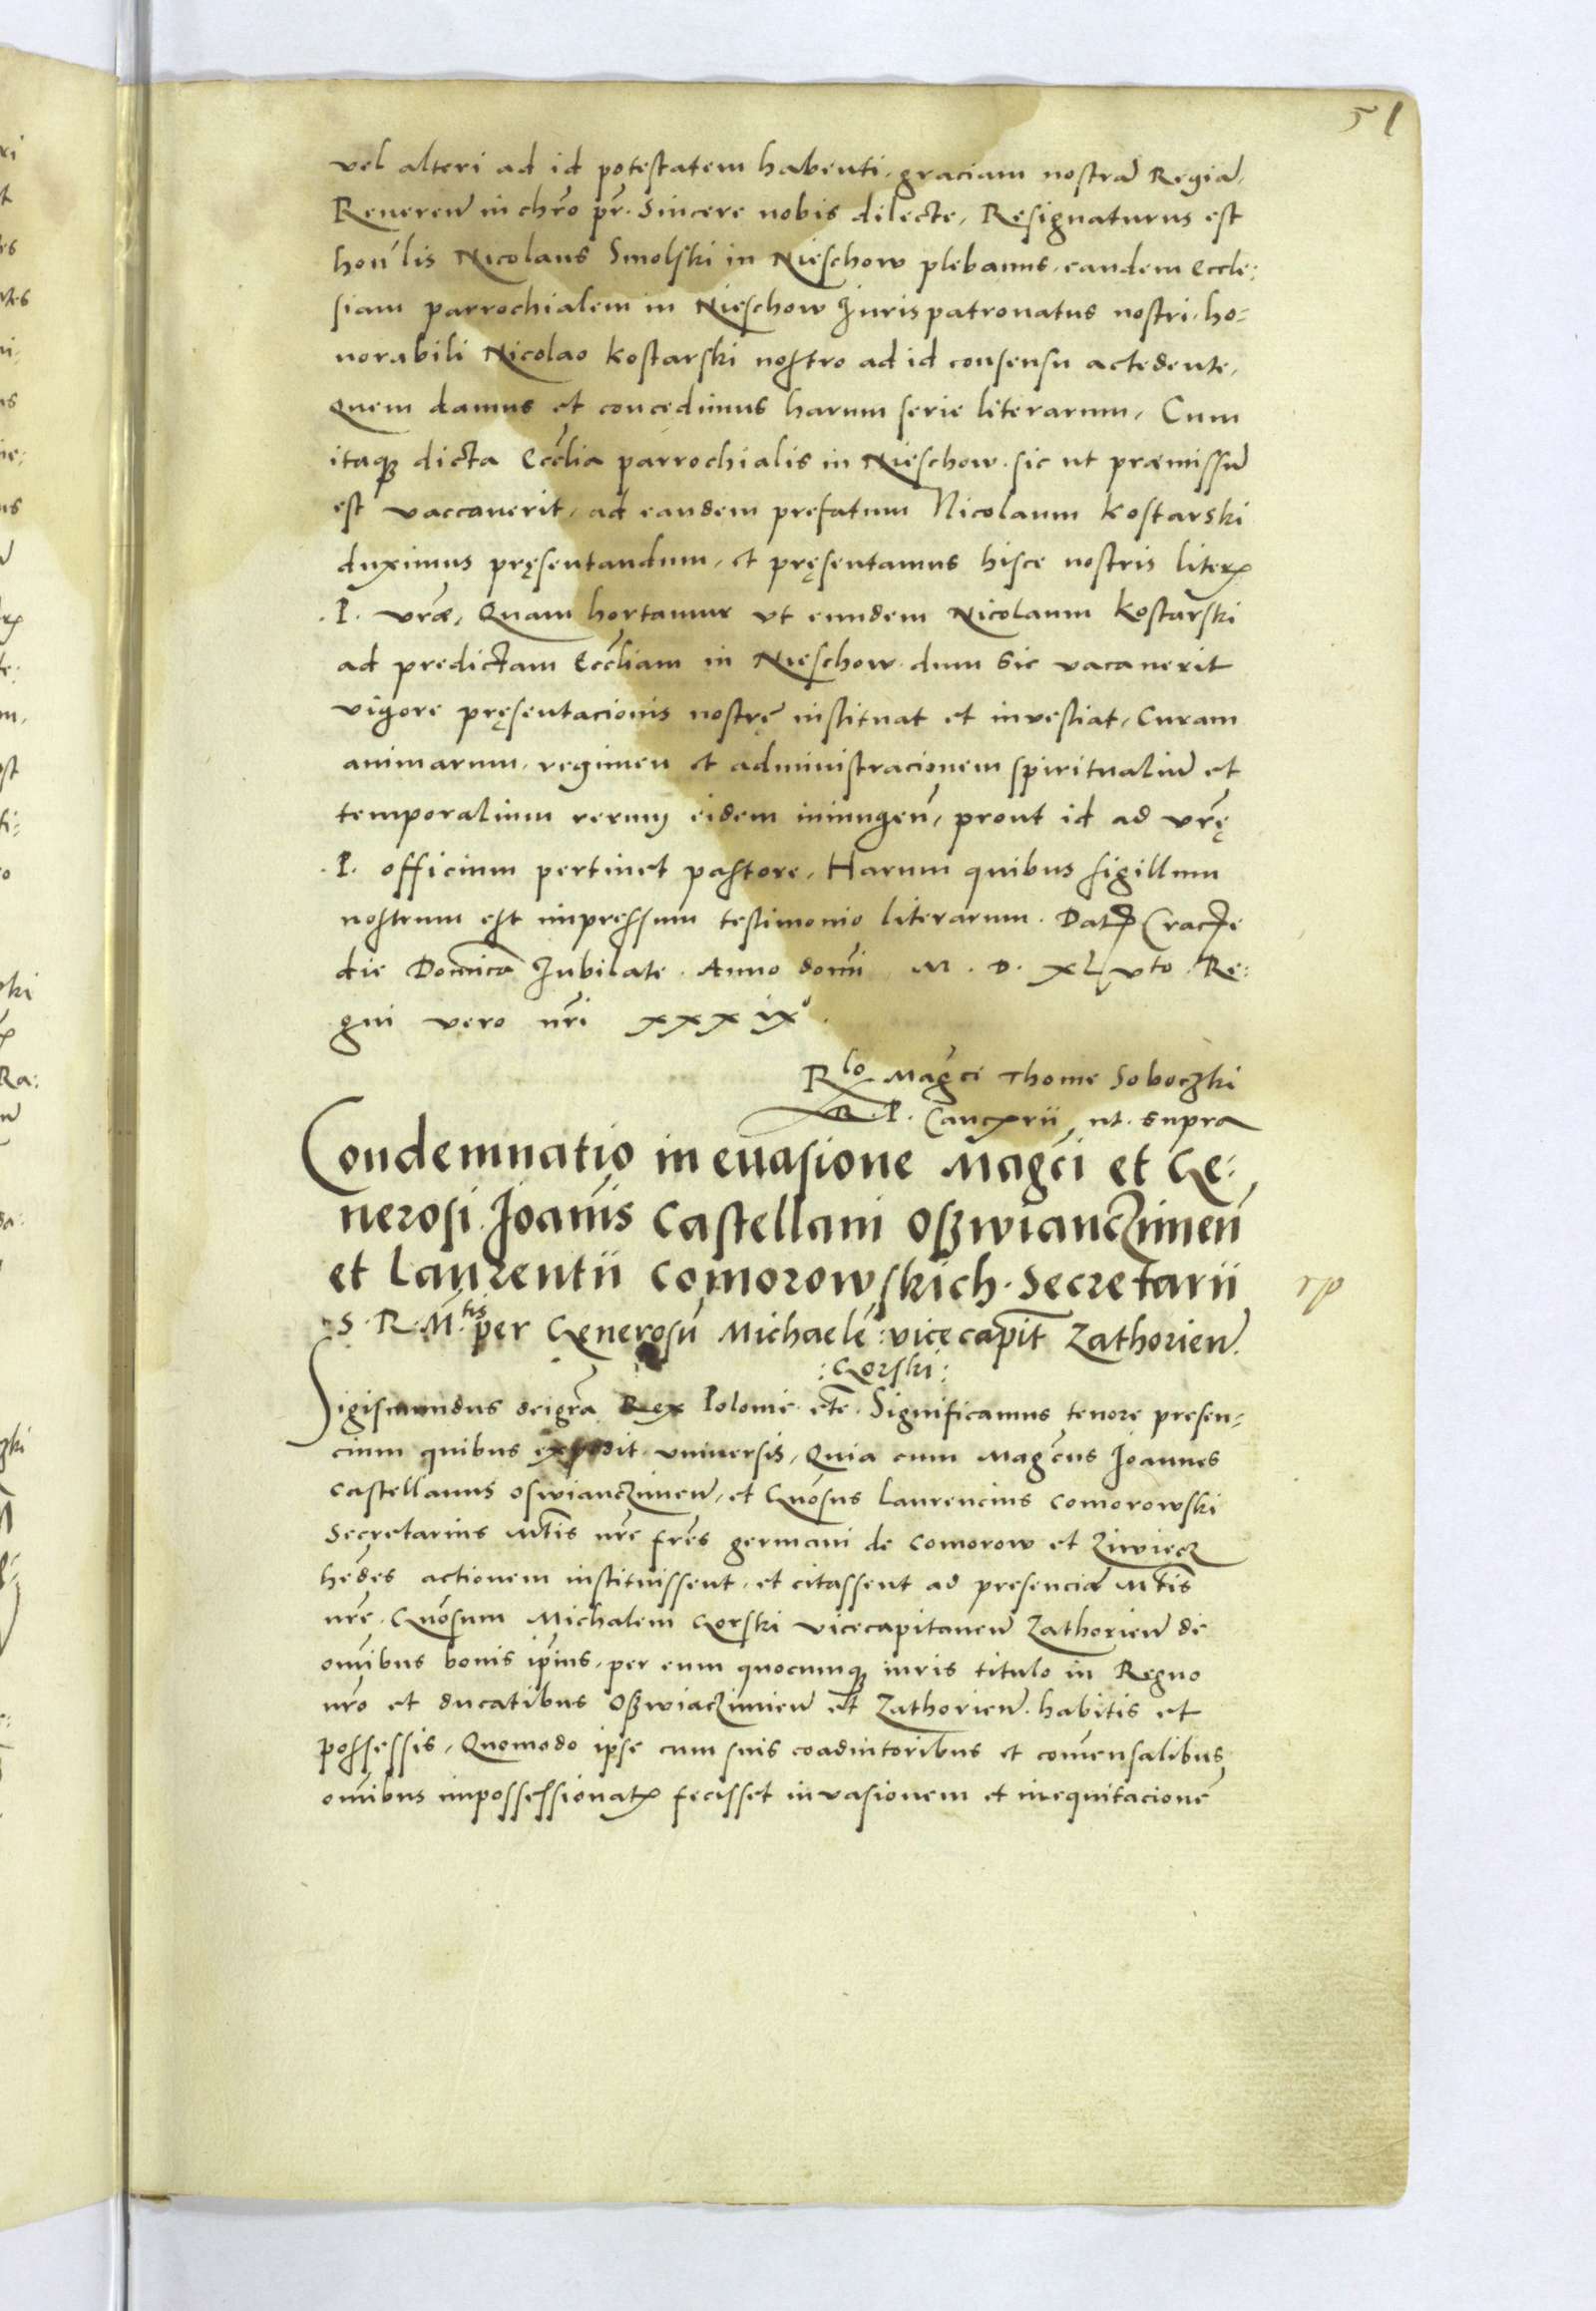 51
vel alteri ad id potestatem habenti, graciam nostrā Regiā.
Reveren̄ in chr̄o pr̄. Sincere nobis dilecte, Resignaturus est
hon̄lis Nicolaus Smolski in Nieschow plebanus, eandem eccle:
siam parrochialem in Nieschow Jurispatronatus nostri, ho=
norabili Nicolao Kostarski nostro ad id consensu accedente,
Quem damus et concedimus harum serie literarum, Cum
itaqꝫ dicta Eccl̄ia parrochialis in Nieschow. sic ut præmissū
est vaccaverit, ad eandem prefatum Nicolaum Kostarski
duximus pręsentandum, et pręsentamus hisce nostris literꝭ
.P. vr̄æ, Quam hortamur ut eundem Nicolaum Kostarski
ad predictam Eccl̄iam in Nieschow dum sic vacaverit
vigore pręsentacionis nostrę instituat et investiat, Curam
animarum, regimen et administracionem spiritualiū et
temporalium rerum eidem iniungen̄, prout id ad vr̄ę
.P. officium pertinet pastore, Harum quibus sigillum
nostrum est impressum testimonio literarum. Datꝭ Cracꝭe
die Domīca Jubilate. Anno domī M. D. XL vto. Re:
gni vero nr̄i xxxix°.
Rlo Magc̄i Thome Soboczki
R. P. Cancꝭrii ut supra
Condemnatio in evasione Magc̄i et Ge:
nerosi Joan̄is Castellani Oßwianczimen̄
et Laurentii Comorowskich. Secretarii
S. R. M.tis per Generosū Michaelē : vicecapit̄ Zathorien̄.
: Gorski :
Sigismundus deigr̄a Rex Polonie etc̄. Significamus tenore presen=
cium quibus expedit universis, Quia cum Magc̄us Joannes
Castellanus Oswianczimen̄, et Gn̄osus Laurencius Comorowski
Secretarius Mt̄is nr̄e fr̄es germani de Comorow et Ziwiecz
her̄des actionem instituissent, et citassent ad presenciā Mt̄is
nr̄e. Gn̄osum Michalem Gorski vicecapitaneū Zathorien̄ de
om̄ibus bonis ip̄ius, per eum quocumqꝫ iuris titulo in Regno
nr̄o et ducatibus Oßwiaczimien̄ et Zathorien̄. habitis et
possessis, Quomodo ipse cum suis coadiutoribus et com̄ensalibus
om̄ibus impossessionatꝭ fecisset invasionem et inequitacionē